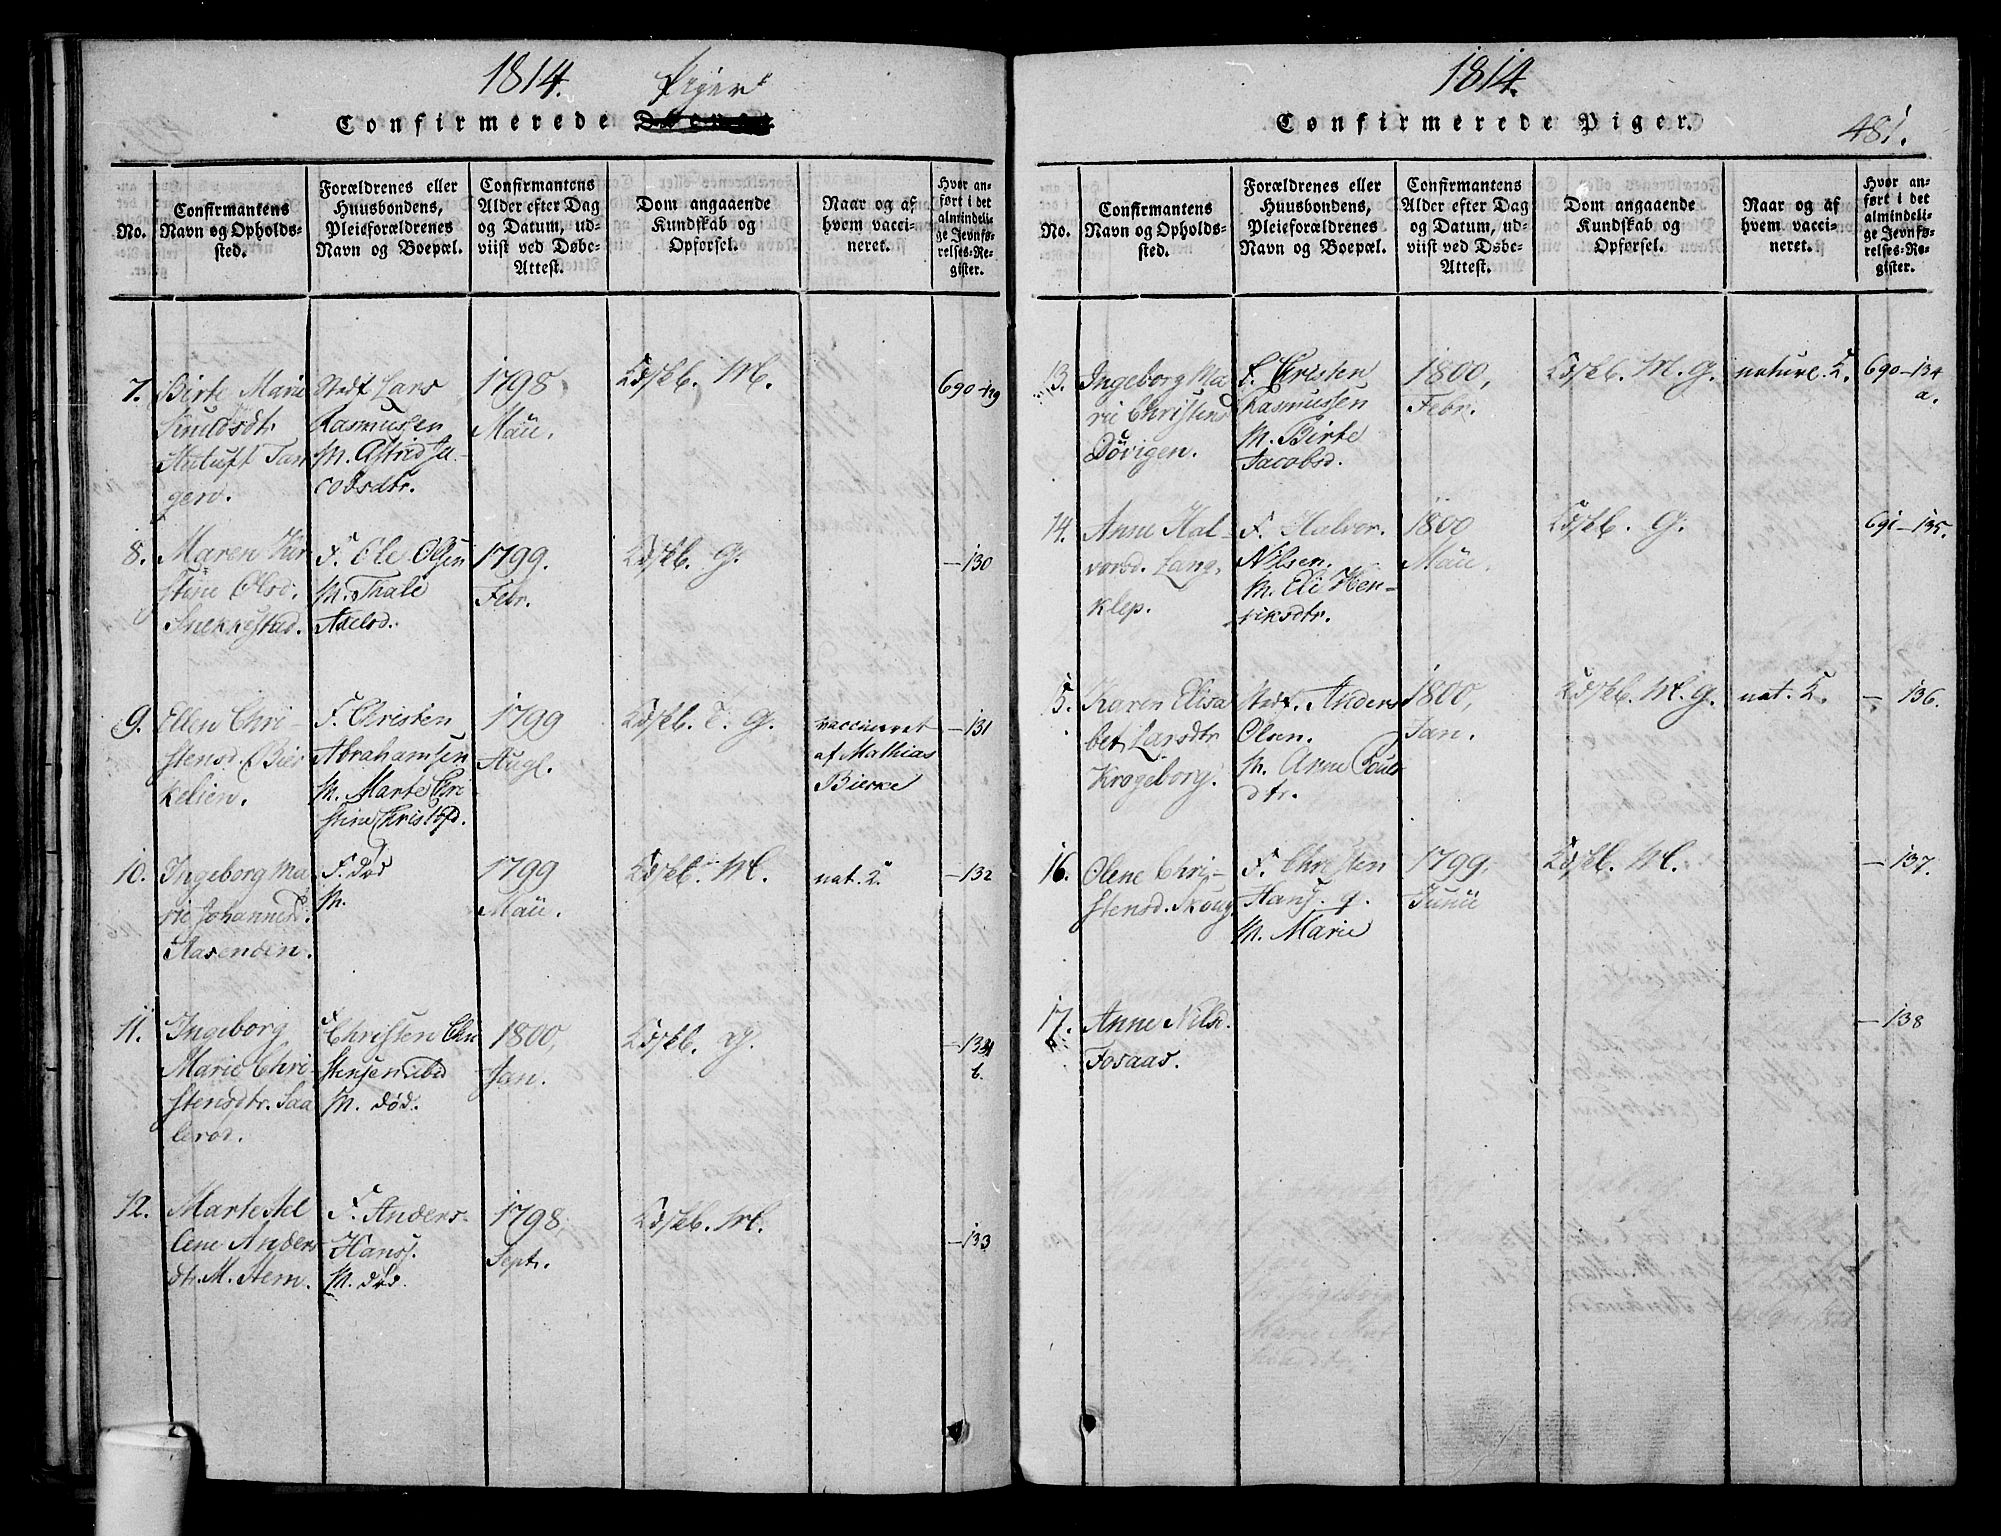 1814. Piger
Confirmerede
No.
Confirmantens
Navn og Opholds-
sted.
Forældrenes eller
Huusbondens,
Pleieforældrenes
Navn og Boepæl.
Confirmantens
Alder efter Dag
og Datum, ud-
viist ved Døbe-
Attest.
Dom angaaende
Kundskab og
Opførsel.
Naar og af
hvem vacci-
neret.
Hvor an-
ført i det
almindeli-
ge Jevnfø-
relses-Re-
gister.
7.
Birte Marie
Knudsdtr
Tan
gerv.
Lars
Rasmussen
M. Astrid Ja-
cobsdtr.
1798,
Mai.
Kdskb. M.
690-129
8.
Maren Kir
stine Olsd.
Snekkestad.
F. Ole Olsen
M. Thale
Axelsd.
1799.
Febr.
Kdskb. G.
-130
9.
Ellen Chri-
stensd. Bier
kelien.
F. Christen
Abrahamsen
M. Marte Chri
stine Christofd.
1799
Augt.
Kdskb. G.
vaccineret
af Mathias
Bierke
-131
10.
Ingeborg Ma
rie Johannesd.
Aasenden.
F. død
M.
1799
Mai.
Kdskb. M.
nat. K.
-132
11.
Ingeborg
Marie Chri-
stensdtr. Saa
lerød.
Christen Chri
stensen ibid
M. død.
1800,
Jan.
Kdskb. G.
b.
12.
Marte Hel
lene Anders
dtr. M. Stem.
F. Anders
Hanss.
M. død.
1798,
Septr.
Kdskb. M.
-133
1814.
Confirmerede Piger.
481.
No.
Confirmantens
Navn og Opholds-
sted.
Forældrenes eller
Huusbondens,
Pleieforældrenes
Navn og Boepæl.
Confirmantens
Alder efter Dag
og Datum, ud-
viist ved Døbe-
Attest.
Dom angaaende
Kundskab og
Opførsel.
Naar og af
hvem vacci-
neret.
Hvor an-
ført i det
almindeli-
ge Jevnfø-
relses-Re-
gister.
13.
Ingeborg Ma-
rie Christens
Døvigen.
F. Christen
Rasmussen
M. Birte
Jacobsd.
1800,
Febr.
Kdskb. M. G.
naturl. K.
690-134
a.
14.
Anne Hal-
vorsd. Lang,
klep.
F. Halvor
Nilsen.
M. Eli Hen-
riksdtr.
1800
Mai.
Kdskb. G.
691-135.
15.
Karen Elisa
bet Larsdtr
Krogeborg.
Anders
Olsen.
M. Anne Pouls
dtr.
1800,
Jan.
Kdskb. M. G.
nat. K.
- 136.
16.
Olene Chri-
stensd. Skoug.
F. Christen
Hans. g.
M. Marie
1799,
Junii
Kdskb. M.
-137.
17.
Anne Nilsd.
Fosaas.
-138